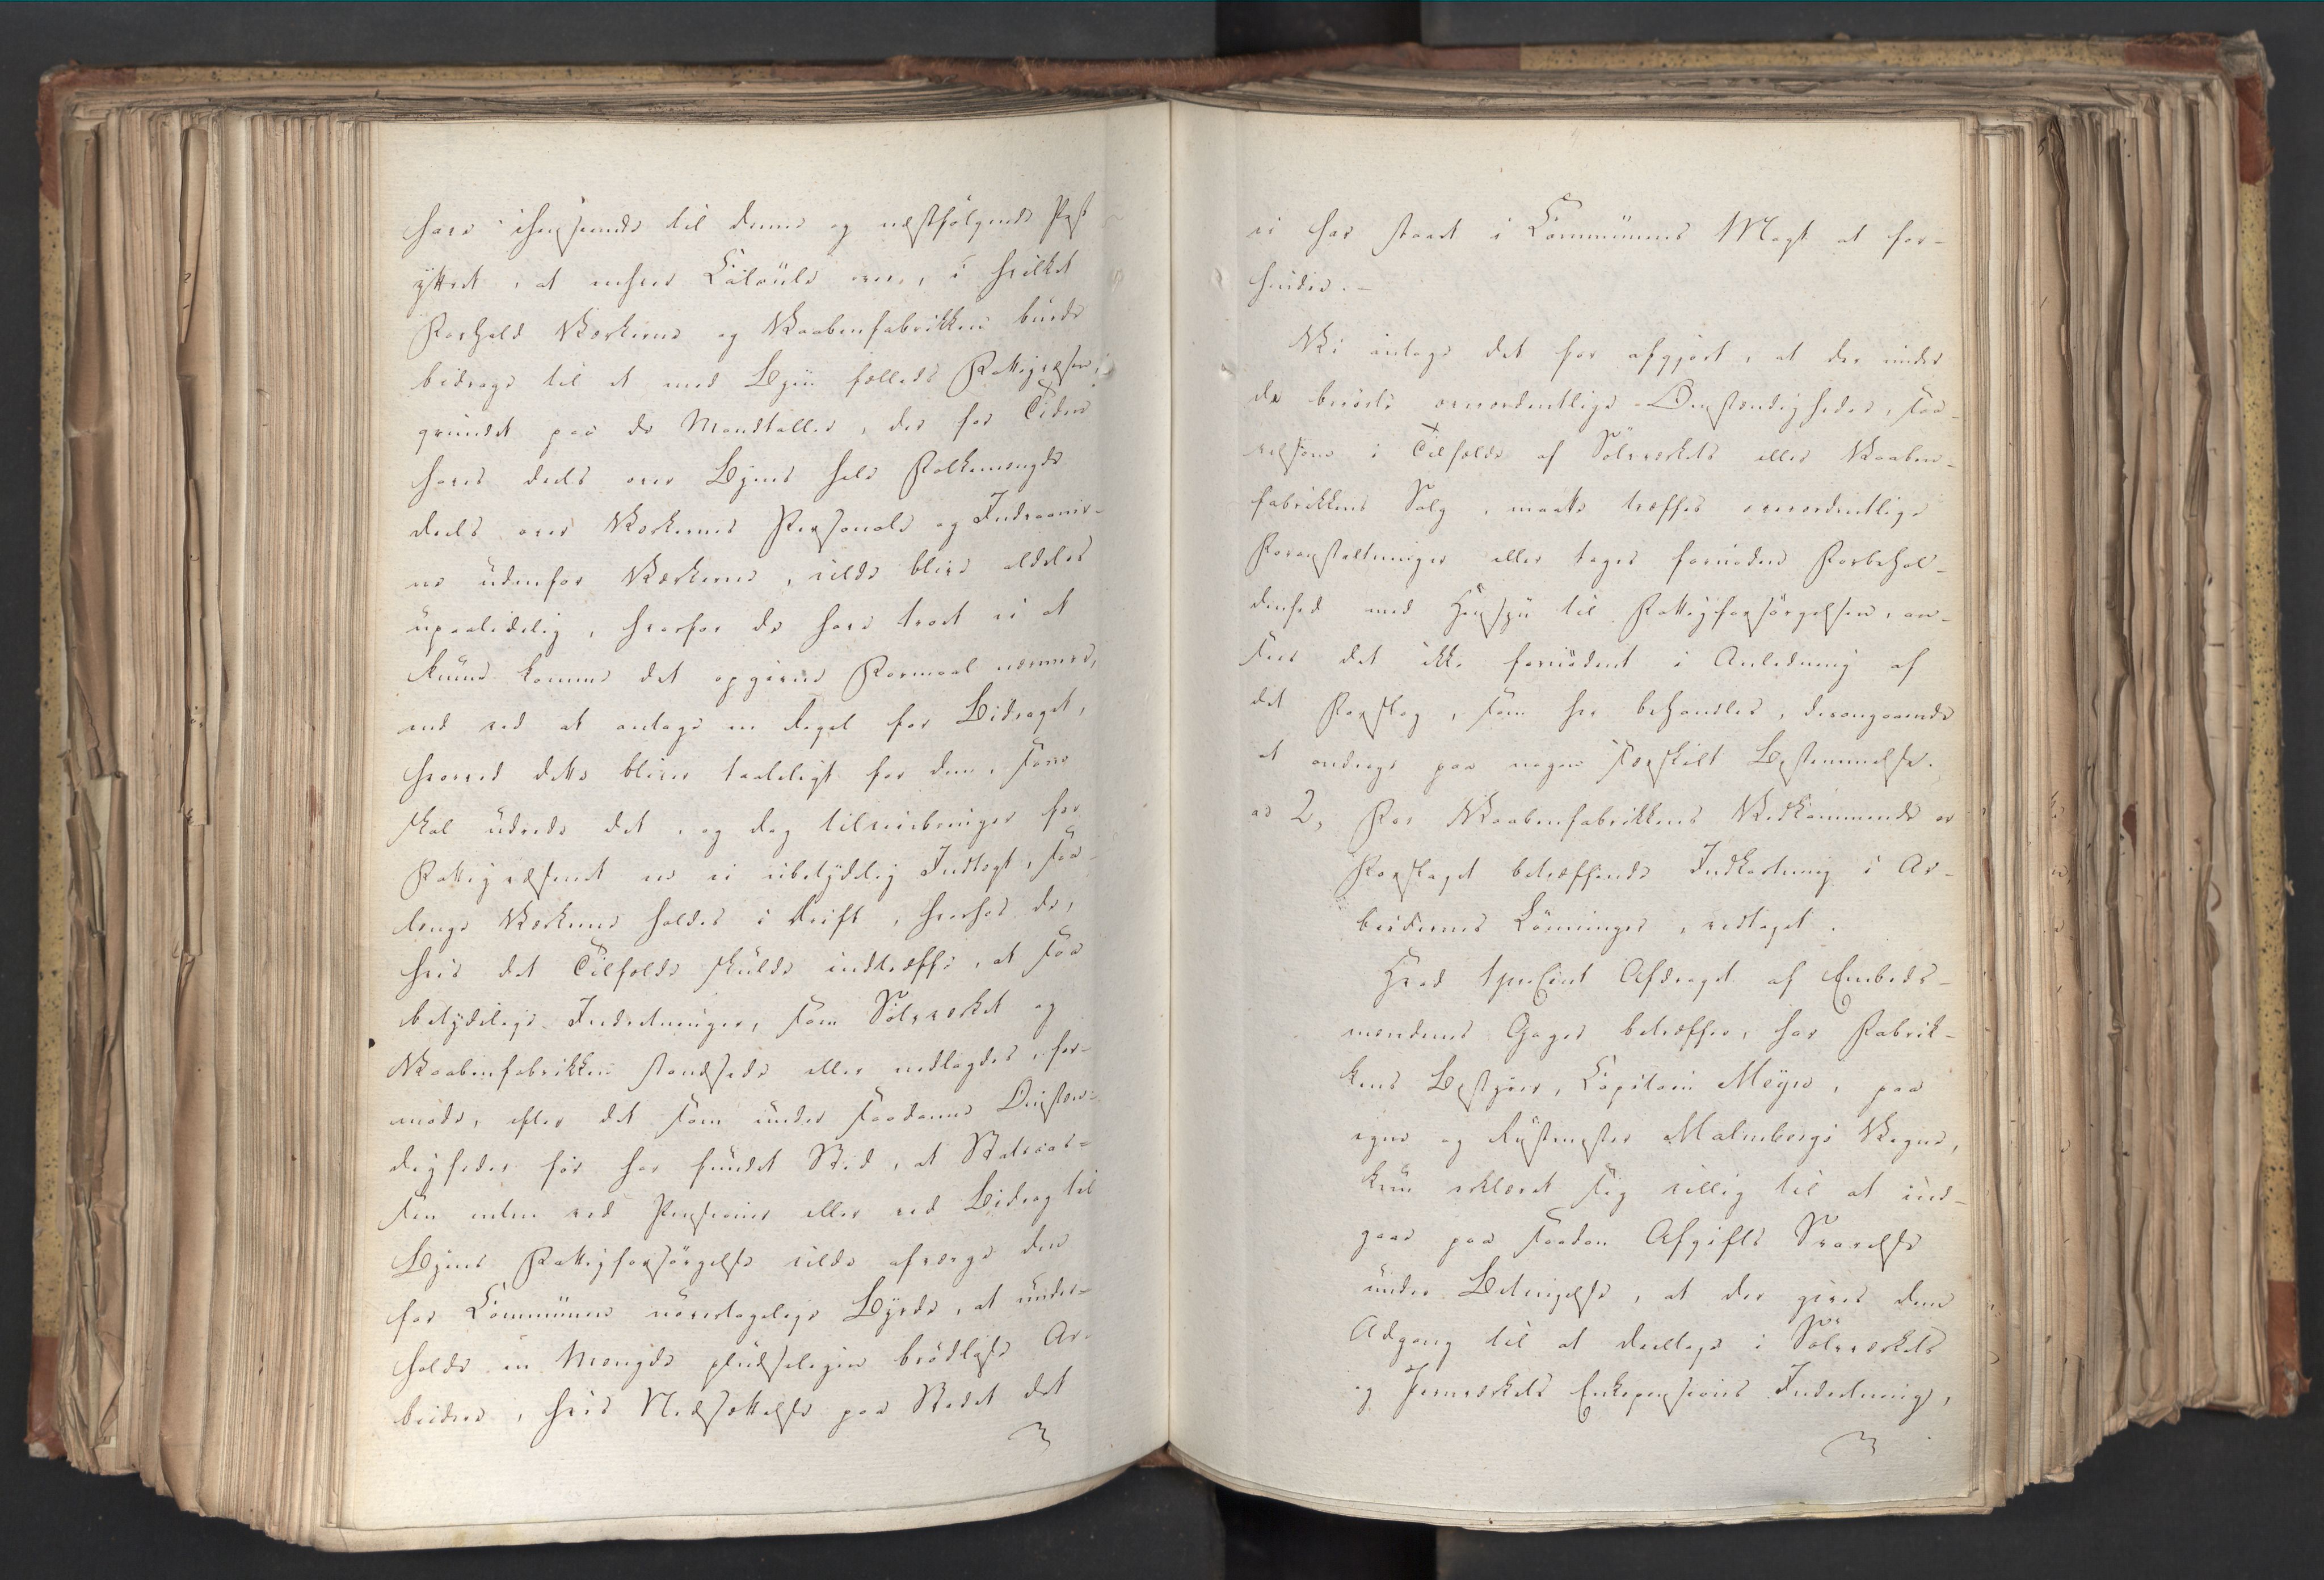 have ihenseende til denne og næstfølgende Post
yttret, at enhver Calcule over, i hvilket
Forhold Værkerne og Vaabenfabrikken burde
bidrage til et med Byen fælleds Fattigvæsen,
grundet paa de Mandtaller, der for Tiden
haves deels over Byens hele Folkemængde
deels over Værkernes Personale og Indvaaner-
ne udenfor Værkerne, vilde blive aldeles
upaalidelig, hvorfor de have troet ei at
kunne komme det opgivne Formaal nærmere,
end ved at antage en Regel for Bidraget,
hvorved dette bliver taaleligt for dem, som
skal udrede det, og dog tilveiebringer for
Fattigvæsenet en ei ubetydelig Indtægt, saa-
længe Værkerne holdes i Drift, hvorhos de,
hvis det Tilfælde skulde indtræffe, at saa
betydelige Indretninger, som Sølvværket og
Vaabenfabrikken standsede eller nedlagdes, for-
mode, efter det som under saadanne Omstæn-
digheder før har fundet Sted, at Statscas-
sen enten ved Pensioner eller ved Bidrag til
Byens Fattigforsørgelse vilde afværge den
for Communen uovertagelige Byrde, at under-
holde en Mængde pludseligen brødløse Ar-
beidere, hvis Nedsættelse paa Stedet det
ei har staaet i Communens Magt at for-
hindre. -
Vi antage det for afgjort, at der under
de berørte overordentlige Omstændigheder, saa-
velsom i Tilfælde af Sølvværkets eller Vaaben-
fabrikkens Salg, maatte træffes overordentlige
Foranstaltninger eller tages fornødne Forbehol-
denhed med Hensyn til Fattigforsørgelsen, an-
sees det ikke fornødent i Anledning af
det Forslag, som her behandles, desangaaende
at andrage paa nogen særskilt Bestemmelse.
ad 2, For Vaabenfabrikkens Vedkommende er
Forslaget betræffende Indkortning i Ar-
beidernes Lønninger, vedtaget.
Hvad 1 proCent Afdraget af Embeds-
mændenes Gager betræffer, har Fabrik-
kens Bestyrer, Capitain Meyer, paa
egne og Rustmester Malmbergs Vegne,
kun erklæret sig villig til at ind-
gaae paa saadan Afgifts Svarelse
under Betingelse, at der gives dem
Adgang til at deeltage i Sølvværkets
og Jernværkets Enkepensions Indretning,